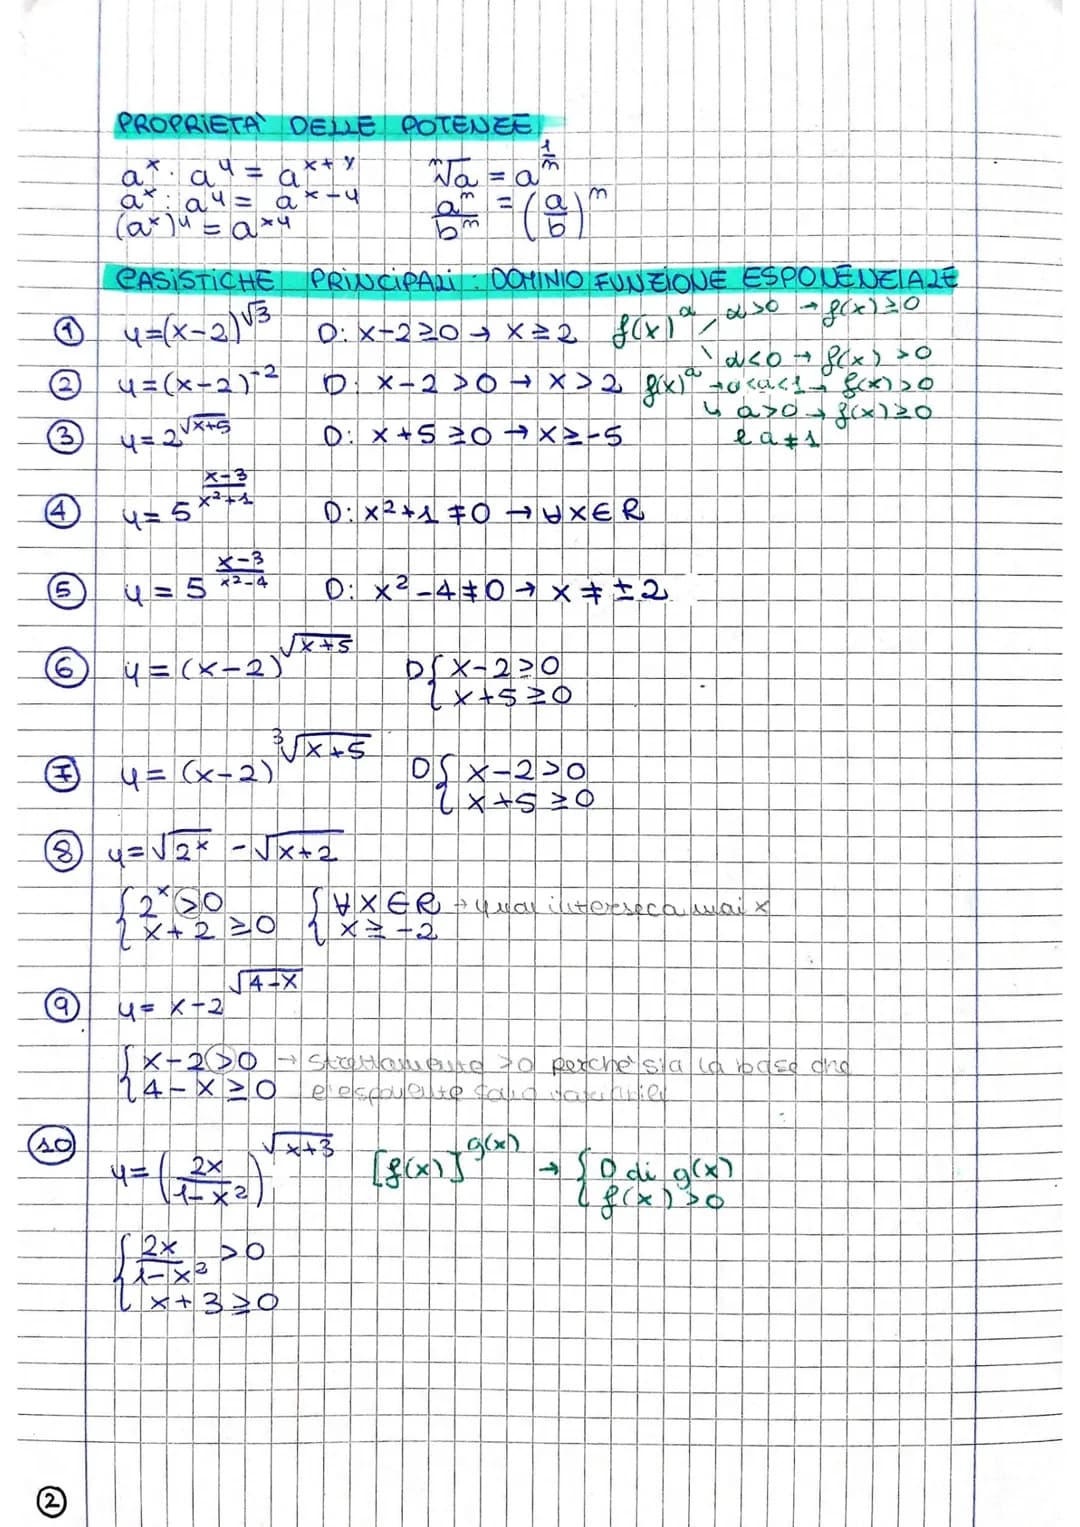 PROPRIETA' DELLE POTENZE
aˣ · aʸ = aˣ⁺ʸ    ⁿ√a = a^(1/n)
aˣ : aʸ = aˣ⁻ʸ    aᵐ/bᵐ = (a/b)ᵐ
(aˣ)ʸ = aˣʸ
CASISTICHE PRINCIPALI : DOMINIO FUNZIONE ESPONENZIALE
① y=(x-2)^√3    D: x-2≥0 → x≥2    f(x)^α, α>0 → f(x)≥0
α<0 → f(x)>0
② y=(x-2)⁻²    D: x-2>0 → x>2    f(x)^a → 0<a<1 → f(x)>0
↳ a>0 → f(x)≥0
③ y=2^√(x+5)    D: x+5≥0 → x≥-5    e a≠1
④ y=5^((x-3)/(x²+1))    D: x²+1≠0 → ∀x∈R
⑤ y=5^((x-3)/(x²-4))    D: x²-4≠0 → x≠±2
⑥ y=(x-2)^√(x+5)    D { x-2≥0
x+5≥0
⑦ y=(x-2)^³√(x+5)    D { x-2>0
x+5≥0
⑧ y=√2ˣ - √(x+2)
{ 2ˣ>0    { ∀x∈R → y non interseca mai x
x+2≥0    x≥-2
⑨ y= x-2^√(4-x)
{ x-2>0 → strettamente >0 perché sia la base che
4-x≥0    l'esponente sono variabili
⑩ y=(2x/(1-x²))^√(x+3)    [f(x)]^g(x) → { D di g(x)
f(x)>0
{ 2x/(1-x²) >0
x+3≥0
②